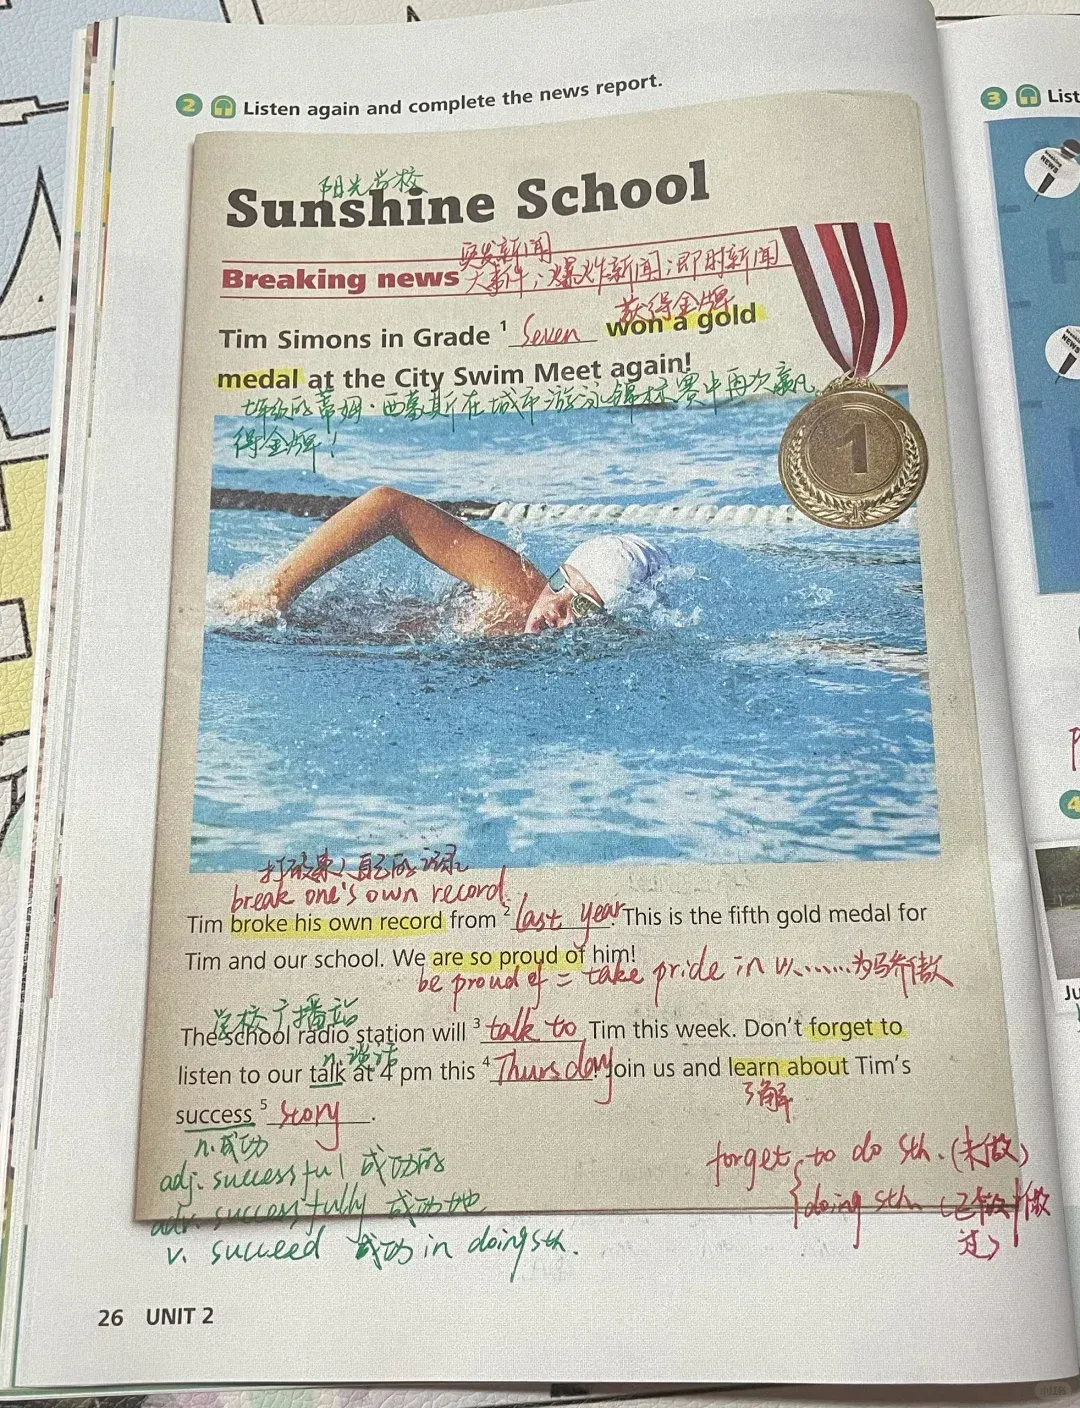 2 Listen again and complete the news report.
阳光学校
Sunshine School
突发新闻
Breaking news 大事件；爆炸新闻；即时新闻
获得金牌
Tim Simons in Grade 1 Seven won a gold
medal at the City Swim Meet again!
七年级的蒂姆·西蒙斯在城市游泳锦标赛中再次赢
得金牌！
1
打破某人自己的记录
break one's own record
Tim broke his own record from 2 last year. This is the fifth gold medal for
Tim and our school. We are so proud of him!
be proud of = take pride in 以……为骄傲
学校广播站
The school radio station will 3 talk to Tim this week. Don't forget to
n.谈话
listen to our talk at 4 pm this 4 Thursday! Join us and learn about Tim's
了解
success 5 story.
n.成功
adj. successful 成功的
adv. successfully 成功地
v. succeed 成功 in doing sth.
forget to do sth. (未做)
doing sth. (已做/做
过)
26 UNIT 2
3 List
NEWS
NEWS
4
Ju
小红书